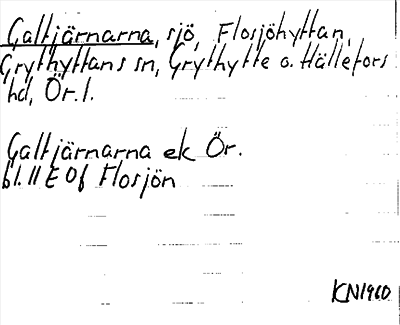 Galtjärnarna, sjö, Flosjöhyttan,
Grythyttans sn, Grythytte o. Hällefors
hd, Ör. l.
Galtjärnarna ek Ör.
bl. 11 E 0f Flosjön
KN1960